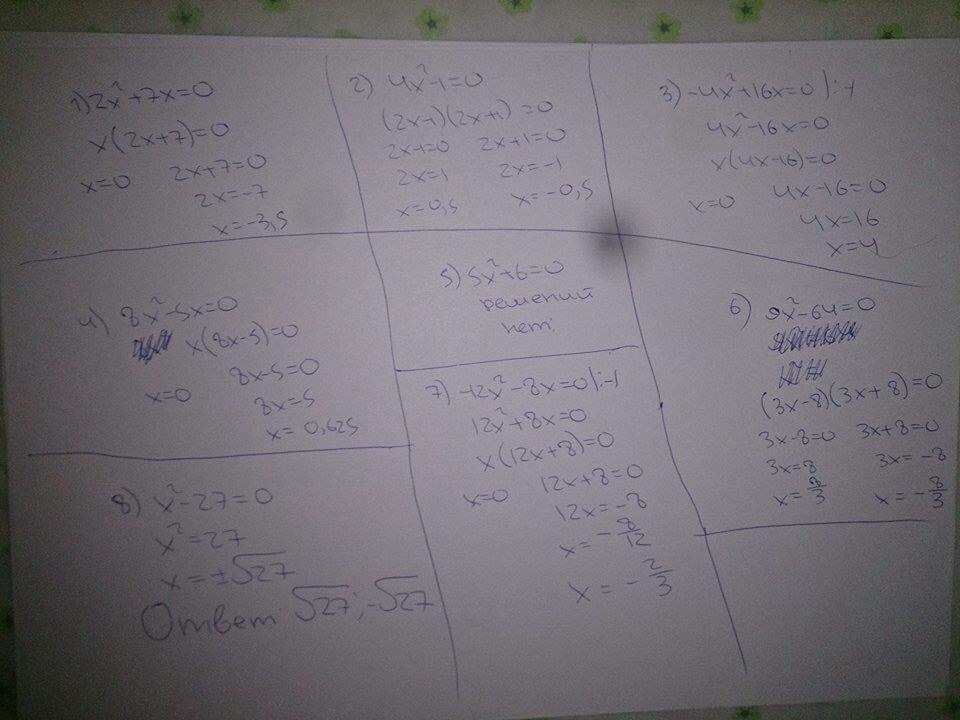 1) 2x²+7x=0
x(2x+7)=0
x=0 2x+7=0
2x=-7
x=-3,5
2) 4x²-1=0
(2x-1)(2x+1)=0
2x-1=0 2x+1=0
2x=1 2x=-1
x=0,5 x=-0,5
3) -4x²+16x=0 |:-1
4x²-16x=0
x(4x-16)=0
x=0 4x-16=0
4x=16
x=4
4) 8x²-5x=0
x(8x-5)=0
x=0 8x-5=0
8x=5
x=0,625
5) 5x²+6=0
решений
нет.
6) 9x²-64=0
(3x-8)(3x+8)=0
3x-8=0 3x+8=0
3x=8 3x=-8
x=8/3 x=-8/3
7) -12x²-8x=0 |:-1
12x²+8x=0
x(12x+8)=0
x=0 12x+8=0
12x=-8
x=-8/12
x=-2/3
8) x²-27=0
x²=27
x=±√27
Ответ: √27; -√27